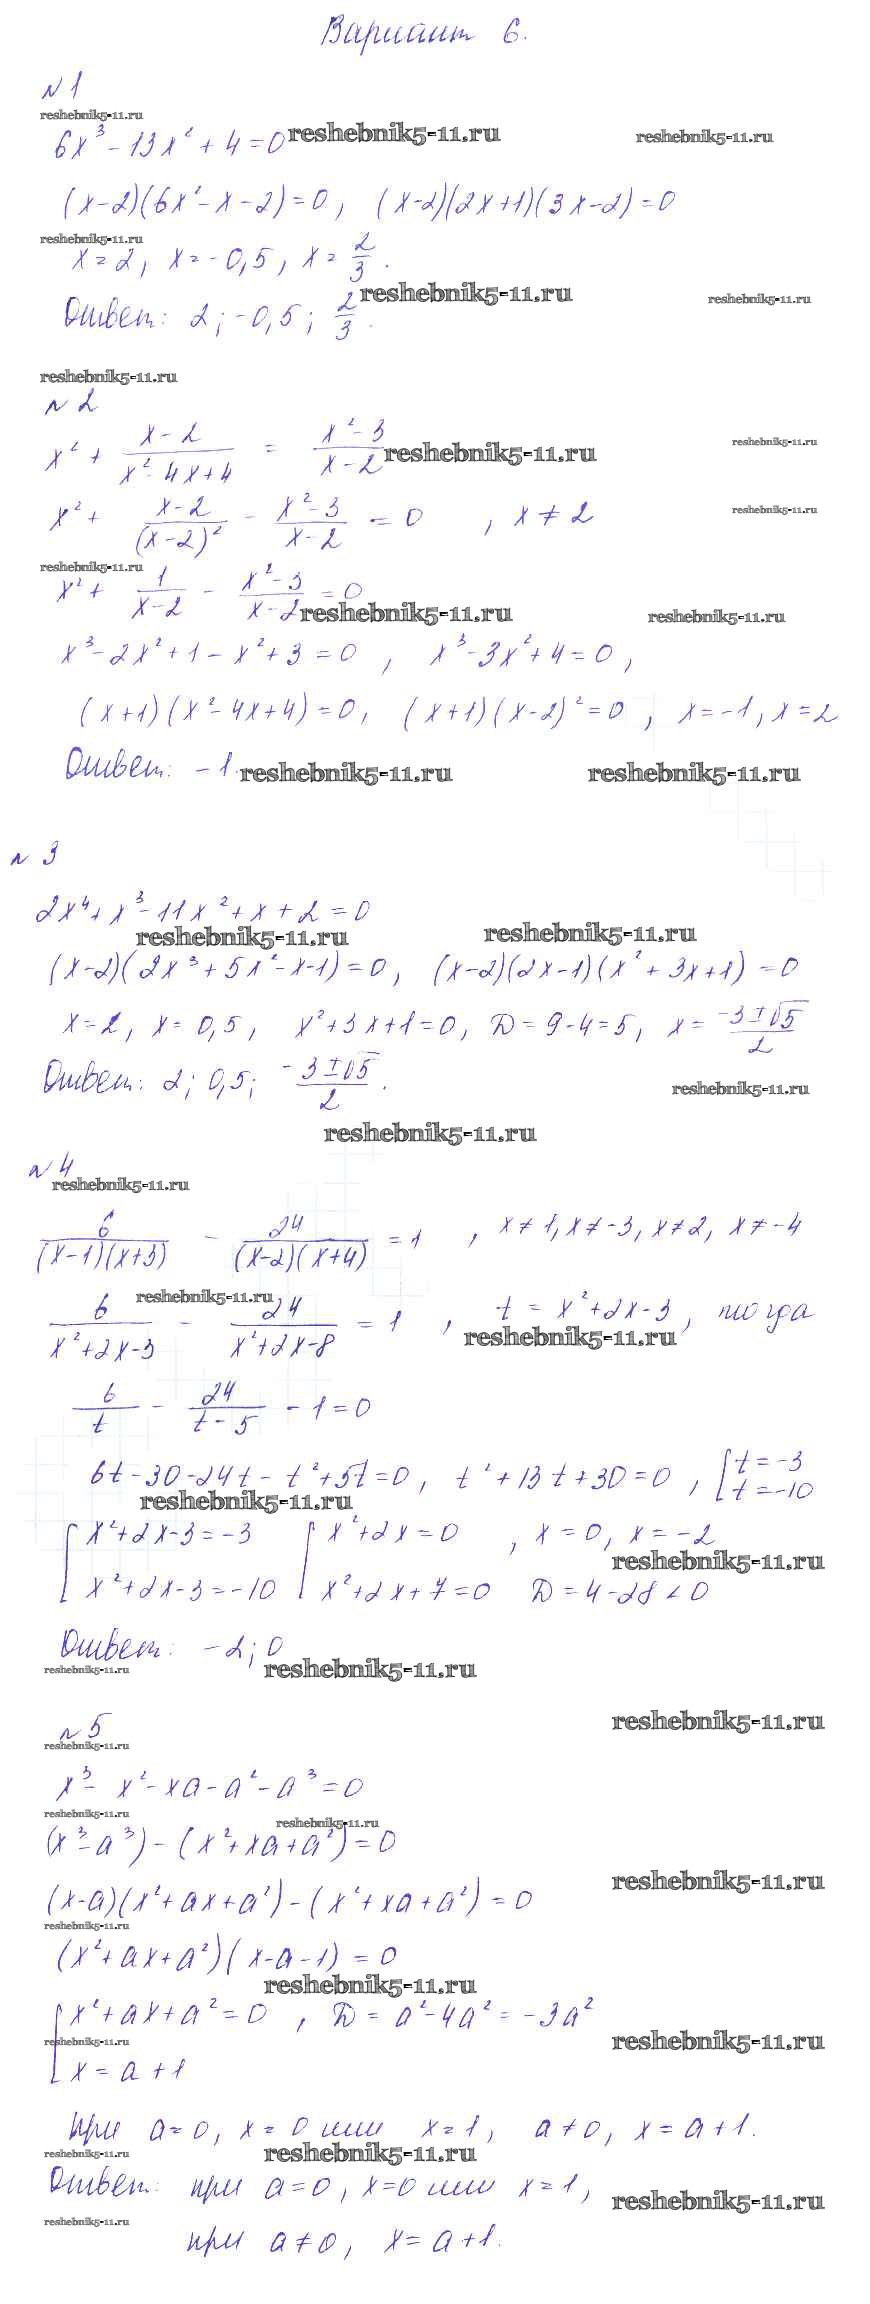 Вариант 6.
№ 1
reshebnik5-11.ru
6x³ - 13x² + 4 = 0 reshebnik5-11.ru reshebnik5-11.ru
(x-2)(6x² - x - 2) = 0, (x-2)(2x+1)(3x-2) = 0
reshebnik5-11.ru
x = 2, x = -0,5, x = 2/3.
reshebnik5-11.ru reshebnik5-11.ru
Ответ: 2; -0,5; 2/3.
reshebnik5-11.ru
№ 2
x² + (x-2)/(x²-4x+4) = (x²-3)/(x-2) reshebnik5-11.ru reshebnik5-11.ru
x² + (x-2)/(x-2)² - (x²-3)/(x-2) = 0, x ≠ 2 reshebnik5-11.ru
reshebnik5-11.ru
x² + 1/(x-2) - (x²-3)/(x-2) = 0
reshebnik5-11.ru reshebnik5-11.ru
x³ - 2x² + 1 - x² + 3 = 0, x³ - 3x² + 4 = 0,
(x+1)(x² - 4x + 4) = 0, (x+1)(x-2)² = 0, x = -1, x = 2
Ответ: -1. reshebnik5-11.ru reshebnik5-11.ru
№ 3
2x⁴ + x³ - 11x² + x + 2 = 0
reshebnik5-11.ru reshebnik5-11.ru
(x-2)(2x³ + 5x² - x - 1) = 0, (x-2)(2x-1)(x² + 3x + 1) = 0
x = 2, x = 0,5, x² + 3x + 1 = 0, D = 9 - 4 = 5, x = (-3±√5)/2
Ответ: 2; 0,5; (-3±√5)/2. reshebnik5-11.ru
reshebnik5-11.ru
№ 4
reshebnik5-11.ru
6/((x-1)(x+3)) - 24/((x-2)(x+4)) = 1, x ≠ 1, x ≠ -3, x ≠ 2, x ≠ -4
reshebnik5-11.ru
6/(x²+2x-3) - 24/(x²+2x-8) = 1, t = x² + 2x - 3, тогда
reshebnik5-11.ru
6/t - 24/(t-5) - 1 = 0
6t - 30 - 24t - t² + 5t = 0, t² + 13t + 30 = 0, [t = -3
t = -10
reshebnik5-11.ru
[x² + 2x - 3 = -3 [x² + 2x = 0, x = 0, x = -2
reshebnik5-11.ru
x² + 2x - 3 = -10 x² + 2x + 7 = 0 D = 4 - 28 < 0
Ответ: -2; 0
reshebnik5-11.ru reshebnik5-11.ru
№ 5 reshebnik5-11.ru
reshebnik5-11.ru
x³ - x² - xa - a² - a³ = 0
reshebnik5-11.ru reshebnik5-11.ru
(x³ - a³) - (x² + xa + a²) = 0
reshebnik5-11.ru
(x-a)(x² + ax + a²) - (x² + xa + a²) = 0
reshebnik5-11.ru
(x² + ax + a²)(x - a - 1) = 0
reshebnik5-11.ru
[x² + ax + a² = 0, D = a² - 4a² = -3a²
reshebnik5-11.ru reshebnik5-11.ru
x = a + 1
при a = 0, x = 0 или x = 1, a ≠ 0, x = a + 1.
reshebnik5-11.ru reshebnik5-11.ru
Ответ: при a = 0, x = 0 или x = 1,
reshebnik5-11.ru
reshebnik5-11.ru
при a ≠ 0, x = a + 1.